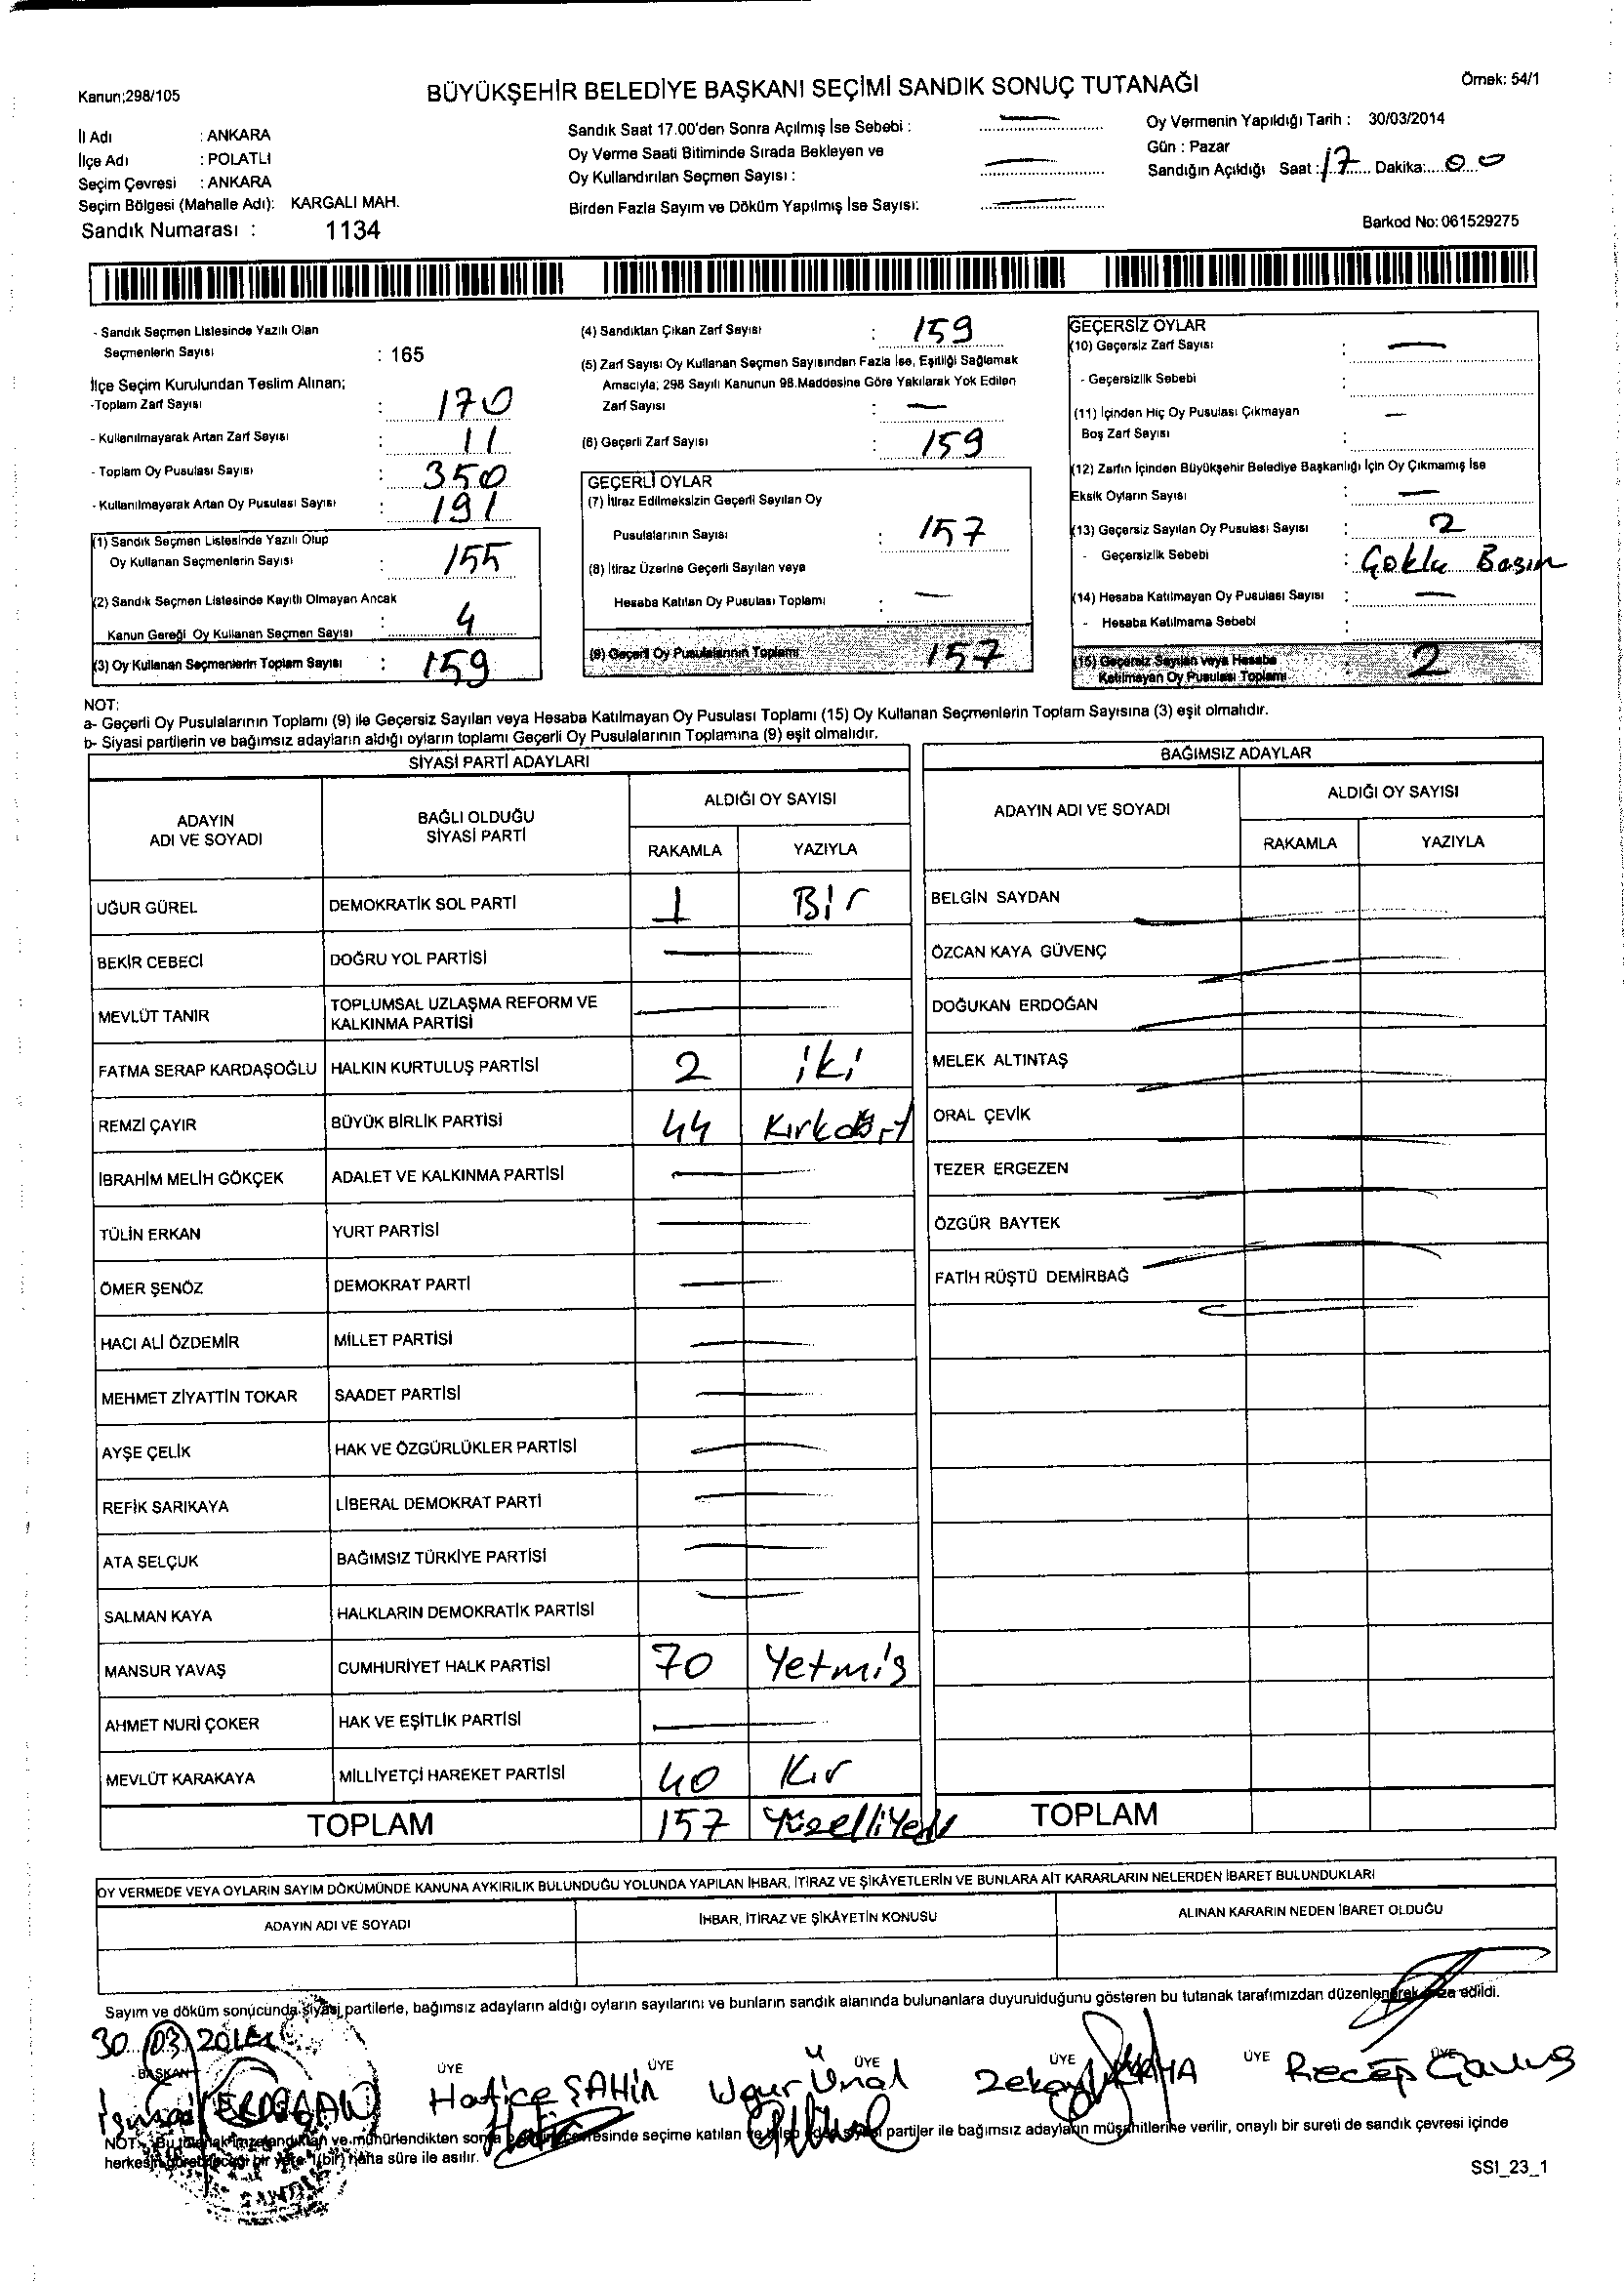 Kanun;298/105
BÜYÜKŞEHİR BELEDİYE BAŞKANI SEÇİMİ SANDIK SONUÇ TUTANAĞI
Örnek: 54/1
İl Adı : ANKARA
İlçe Adı : POLATLI
Seçim Çevresi : ANKARA
Seçim Bölgesi (Mahalle Adı): KARGALI MAH.
Sandık Numarası : 1134
Sandık Saat 17.00'den Sonra Açılmış İse Sebebi : —
Oy Verme Saati Bitiminde Sırada Bekleyen ve
Oy Kullandırılan Seçmen Sayısı : —
Birden Fazla Sayım ve Döküm Yapılmış İse Sayısı: —
Oy Vermenin Yapıldığı Tarih : 30/03/2014
Gün : Pazar
Sandığın Açıldığı Saat : 17 Dakika: 00
Barkod No: 061529275
- Sandık Seçmen Listesinde Yazılı Olan
Seçmenlerin Sayısı : 165
İlçe Seçim Kurulundan Teslim Alınan;
-Toplam Zarf Sayısı : 170
- Kullanılmayarak Artan Zarf Sayısı : 11
- Toplam Oy Pusulası Sayısı : 350
- Kullanılmayarak Artan Oy Pusulası Sayısı : 191
(1) Sandık Seçmen Listesinde Yazılı Olup
Oy Kullanan Seçmenlerin Sayısı : 155
(2) Sandık Seçmen Listesinde Kayıtlı Olmayan Ancak
Kanun Gereği Oy Kullanan Seçmen Sayısı : 4
(3) Oy Kullanan Seçmenlerin Toplam Sayısı : 159
(4) Sandıktan Çıkan Zarf Sayısı : 159
(5) Zarf Sayısı Oy Kullanan Seçmen Sayısından Fazla İse, Eşitliği Sağlamak
Amacıyla; 298 Sayılı Kanunun 98.Maddesine Göre Yakılarak Yok Edilen
Zarf Sayısı : —
(6) Geçerli Zarf Sayısı : 159
GEÇERLİ OYLAR
(7) İtiraz Edilmeksizin Geçerli Sayılan Oy
Pusulalarının Sayısı : 157
(8) İtiraz Üzerine Geçerli Sayılan veya
Hesaba Katılan Oy Pusulası Toplamı : —
(9) Geçerli Oy Pusulalarının Toplamı 157
GEÇERSİZ OYLAR
(10) Geçersiz Zarf Sayısı : —
- Geçersizlik Sebebi :
(11) İçinden Hiç Oy Pusulası Çıkmayan —
Boş Zarf Sayısı :
(12) Zarfın İçinden Büyükşehir Belediye Başkanlığı İçin Oy Çıkmamış İse
Eksik Oyların Sayısı : —
(13) Geçersiz Sayılan Oy Pusulası Sayısı : 2
- Geçersizlik Sebebi : Çoklu Basım
(14) Hesaba Katılmayan Oy Pusulası Sayısı : —
- Hesaba Katılmama Sebebi :
(15) Geçersiz Sayılan veya Hesaba
Katılmayan Oy Pusulası Toplamı : 2
NOT:
a- Geçerli Oy Pusulalarının Toplamı (9) ile Geçersiz Sayılan veya Hesaba Katılmayan Oy Pusulası Toplamı (15) Oy Kullanan Seçmenlerin Toplam Sayısına (3) eşit olmalıdır.
b- Siyasi partilerin ve bağımsız adayların aldığı oyların toplamı Geçerli Oy Pusulalarının Toplamına (9) eşit olmalıdır.
SİYASİ PARTİ ADAYLARI
ADAYIN ADI VE SOYADI BAĞLI OLDUĞU SİYASİ PARTİ ALDIĞI OY SAYISI
RAKAMLA YAZIYLA
UĞUR GÜREL DEMOKRATİK SOL PARTİ 1 Bir
BEKİR CEBECİ DOĞRU YOL PARTİSİ —
MEVLÜT TANIR TOPLUMSAL UZLAŞMA REFORM VE KALKINMA PARTİSİ —
FATMA SERAP KARDAŞOĞLU HALKIN KURTULUŞ PARTİSİ 2 iki
REMZİ ÇAYIR BÜYÜK BİRLİK PARTİSİ 44 Kırkdört
İBRAHİM MELİH GÖKÇEK ADALET VE KALKINMA PARTİSİ —
TÜLİN ERKAN YURT PARTİSİ —
ÖMER ŞENÖZ DEMOKRAT PARTİ —
HACI ALİ ÖZDEMİR MİLLET PARTİSİ —
MEHMET ZİYATTİN TOKAR SAADET PARTİSİ —
AYŞE ÇELİK HAK VE ÖZGÜRLÜKLER PARTİSİ —
REFİK SARIKAYA LİBERAL DEMOKRAT PARTİ —
ATA SELÇUK BAĞIMSIZ TÜRKİYE PARTİSİ —
SALMAN KAYA HALKLARIN DEMOKRATİK PARTİSİ —
MANSUR YAVAŞ CUMHURİYET HALK PARTİSİ 70 Yetmiş
AHMET NURİ ÇOKER HAK VE EŞİTLİK PARTİSİ —
MEVLÜT KARAKAYA MİLLİYETÇİ HAREKET PARTİSİ 40 Kır
TOPLAM 157 Yüzelliyedi
BAĞIMSIZ ADAYLAR
ADAYIN ADI VE SOYADI ALDIĞI OY SAYISI
RAKAMLA YAZIYLA
BELGİN SAYDAN —
ÖZCAN KAYA GÜVENÇ —
DOĞUKAN ERDOĞAN —
MELEK ALTINTAŞ —
ORAL ÇEVİK —
TEZER ERGEZEN —
ÖZGÜR BAYTEK —
FATİH RÜŞTÜ DEMİRBAĞ —
TOPLAM
OY VERMEDE VEYA OYLARIN SAYIM DÖKÜMÜNDE KANUNA AYKIRILIK BULUNDUĞU YOLUNDA YAPILAN İHBAR, İTİRAZ VE ŞİKÂYETLERİN VE BUNLARA AİT KARARLARIN NELERDEN İBARET BULUNDUKLARI
ADAYIN ADI VE SOYADI İHBAR, İTİRAZ VE ŞİKÂYETİN KONUSU ALINAN KARARIN NEDEN İBARET OLDUĞU
Sayım ve döküm sonucunda siyasi partilerle, bağımsız adayların aldığı oyların sayılarını ve bunların sandık alanında bulunanlara duyurulduğunu gösteren bu tutanak tarafımızdan düzenlenerek imza edildi.
30 03 2014
BAŞKAN ÜYE ÜYE ÜYE ÜYE ÜYE ÜYE
ERDOĞAN Hatice ŞAHİN Uğur Ünal Recep
NOT: Bu tutanak imzalandıktan ve mühürlendikten sonra seçime katılan partiler ile bağımsız adayların müşahitlerine verilir, onaylı bir sureti de sandık çevresi içinde
herkesin görebileceği bir yere 1(bir) hafta süre ile asılır.
SSI_23_1